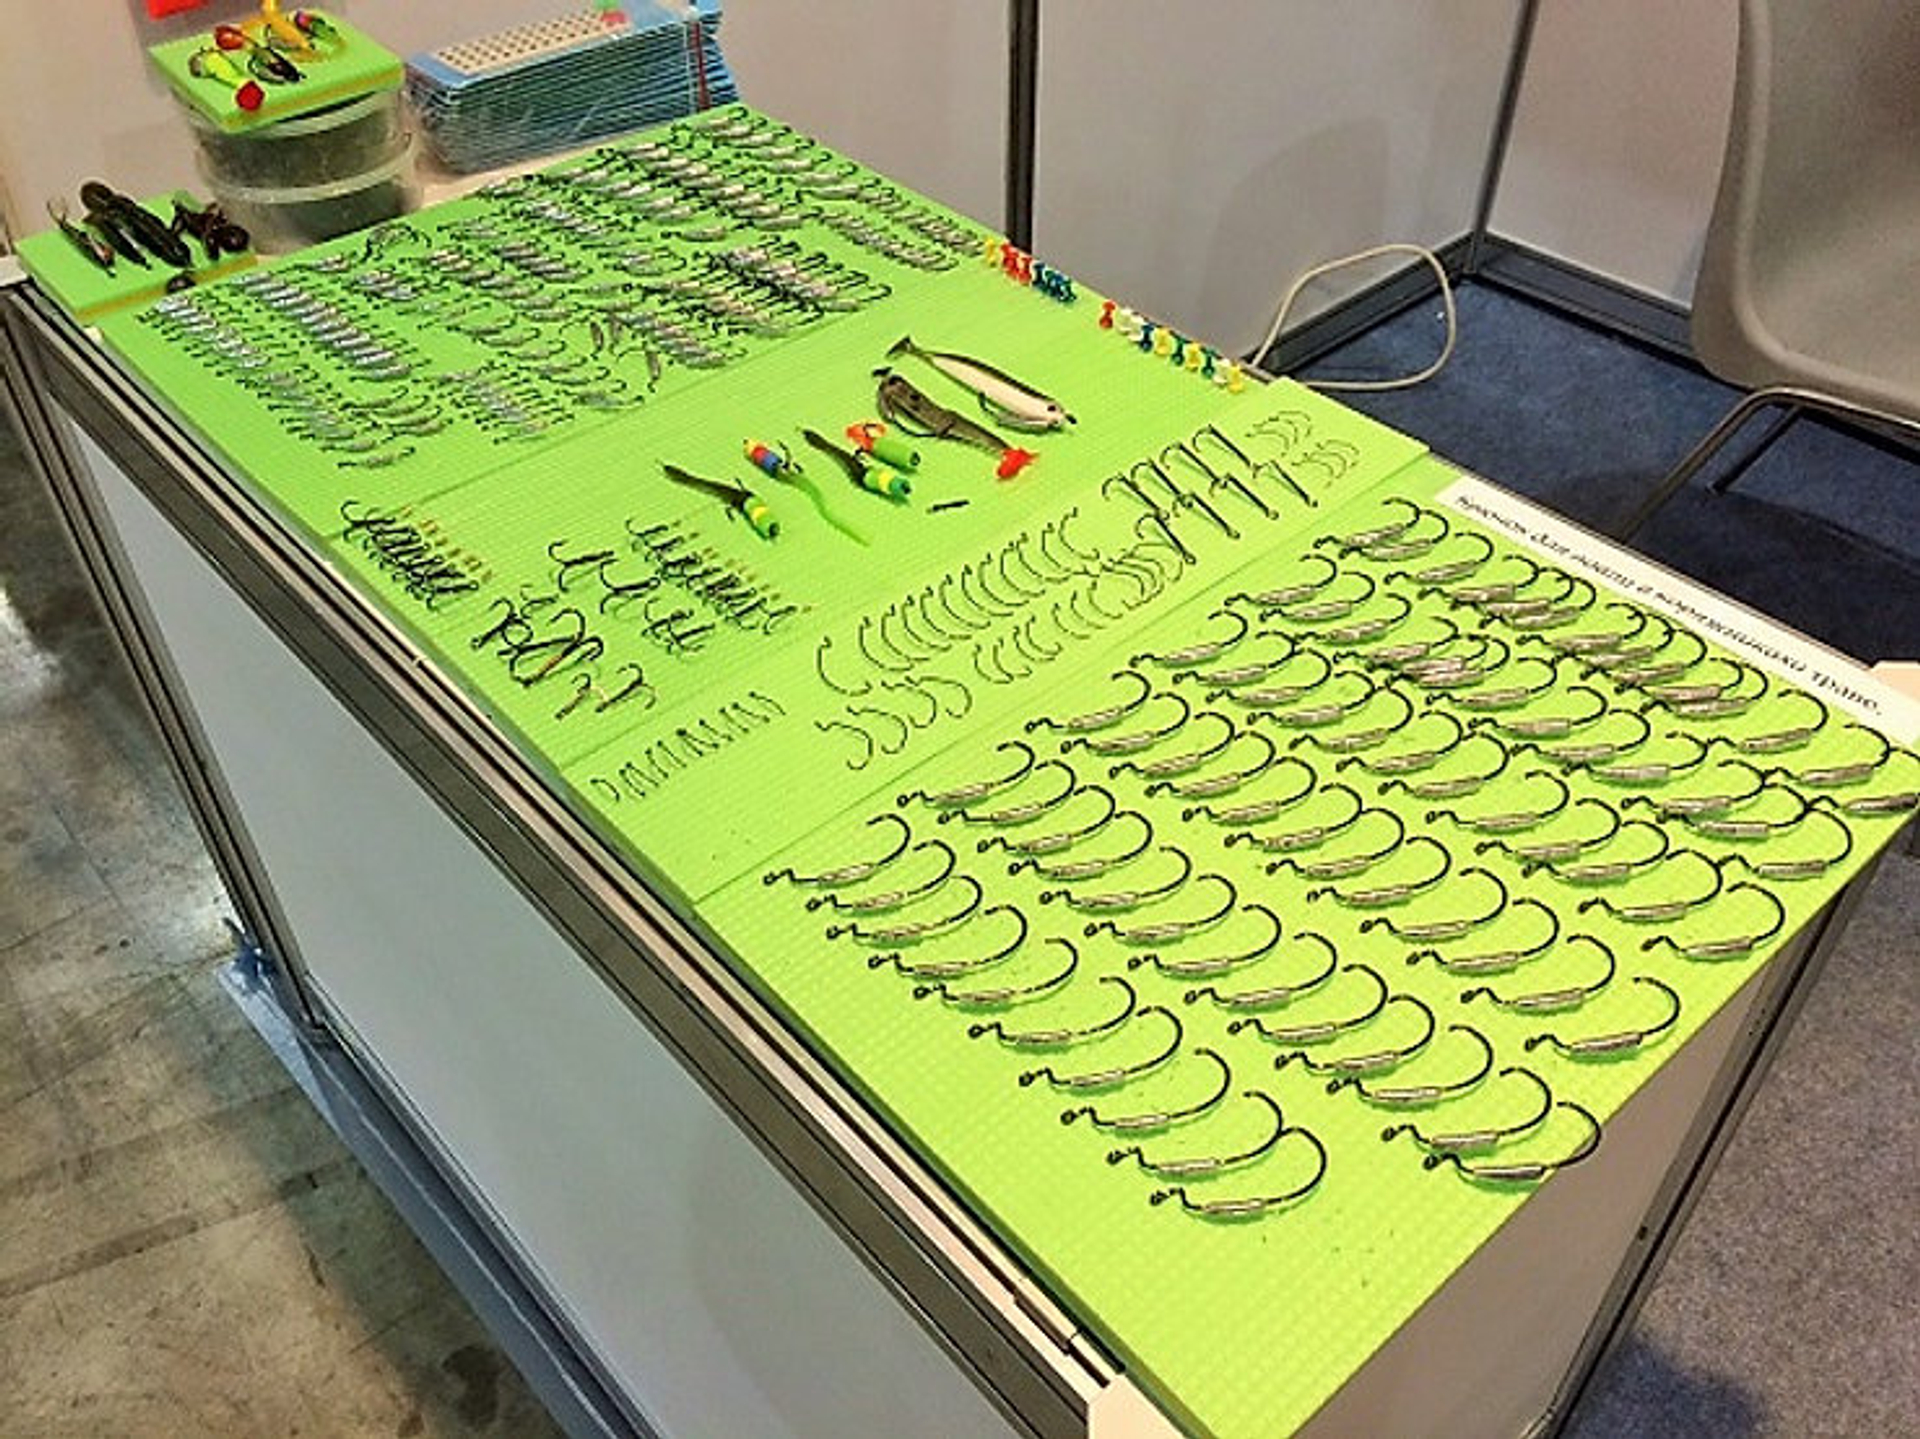 Крючок для ловли в коряжниках и траве.